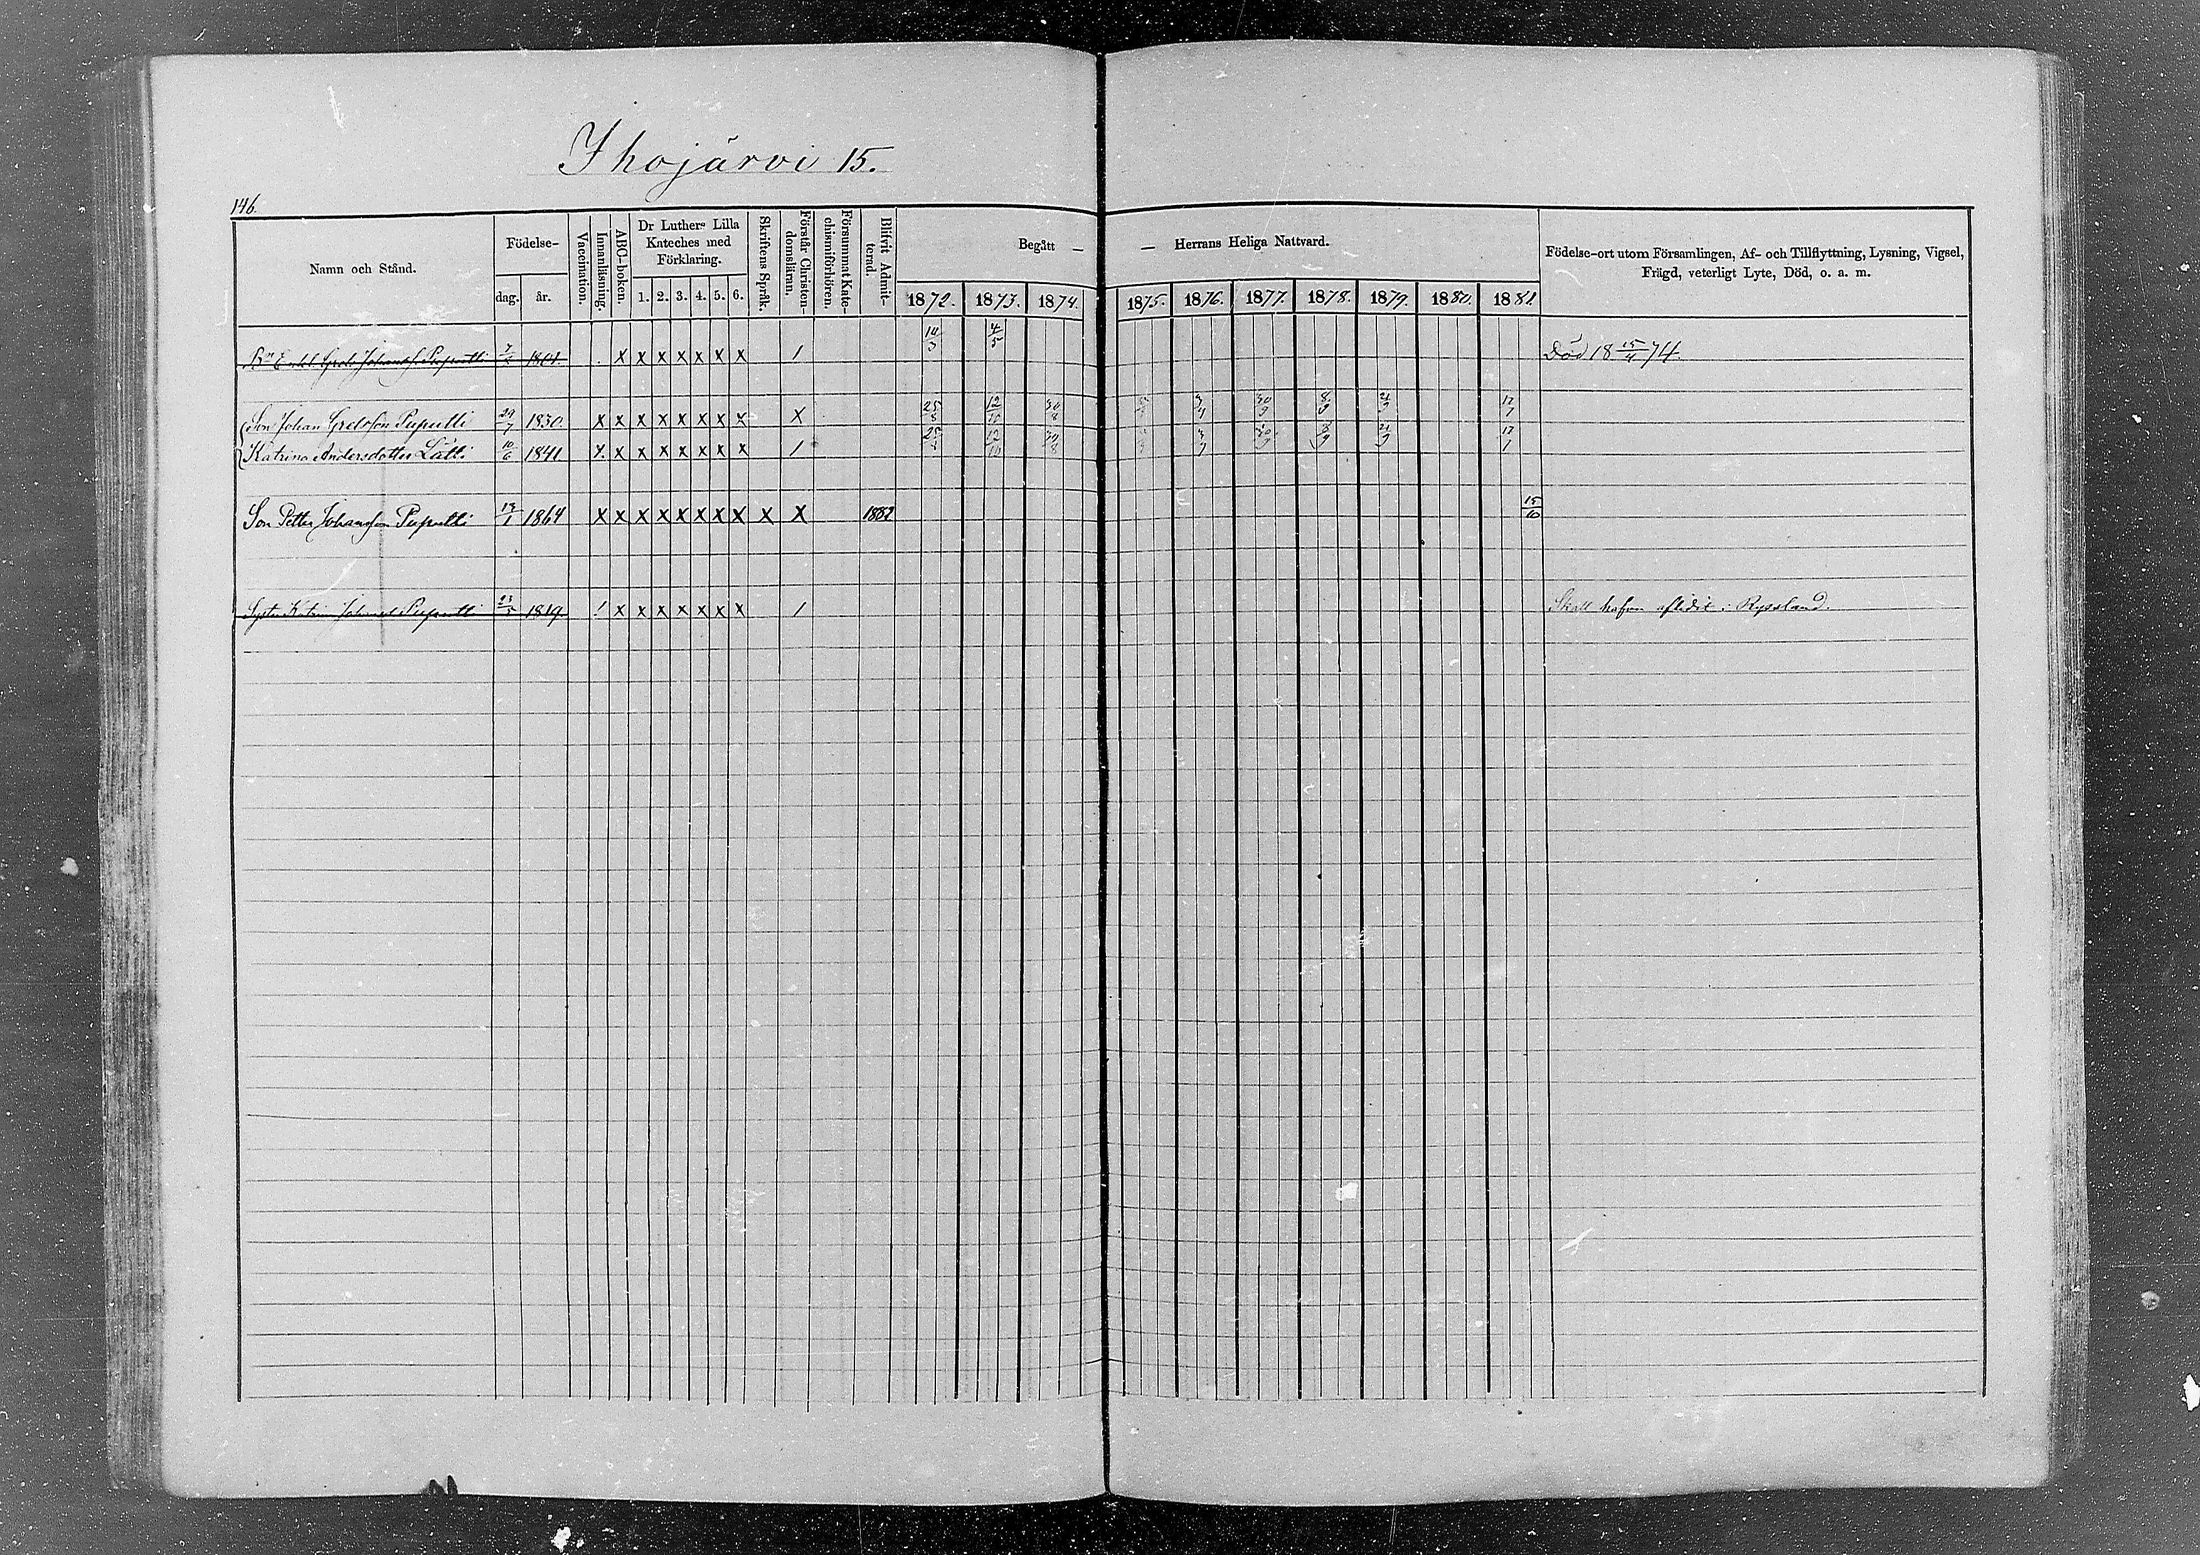 Ihojärvi 15.
146.
Namn och Stånd.
Födelse-
dag. år.
Vaccination.
Innanläsning.
ABC-boken.
Dr Luthers Lilla Kateches med Förklaring.
1. 2. 3. 4. 5. 6.
Skriftens Språk.
Förstår Christendomsläran.
Försummat Katechismiförhören.
Blifvit Admitterad.
Begått — — Herrans Heliga Nattvard.
1872. 1873. 1874. 1875. 1876. 1877. 1878. 1879. 1880. 1881
Födelse-ort utom Församlingen, Af- och Tillflyttning, Lysning, Vigsel,
Frägd, veterligt Lyte, Död, o. a. m.
Puputti 1801. x x x x x x x 1 4/5 Död 18 15/4 74.
Son Johan Grelsson Puputti 29/7 1830. x x x x x x x x x 25/8 12/10 30/8 30/9 8/9 21/9 17/7
Katrina Andersdotter Lätti 10/6 1841 x x x x x x x x 1 12/10 30/8 30/9 8/9 21/9 17/7
Son Petter Johansson Puputti 19/1 1864 x x x x x x x x x x 1882 15/10
Syster Katrina Puputti 23/5 1819. 1 x x x x x x x 1 Skall hafva aflidit i Ryssland.